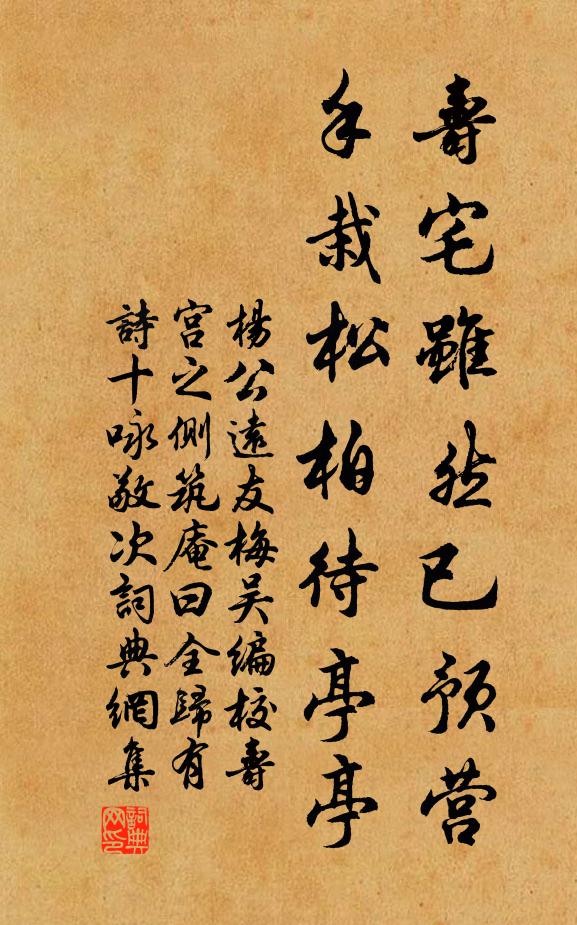 壽宅雖然已預营
手栽松柏待亭亭
楊公遠友梅吴編校壽
宫之側筑庵曰全歸有
詩十咏敬次詞典網集
詞典网印